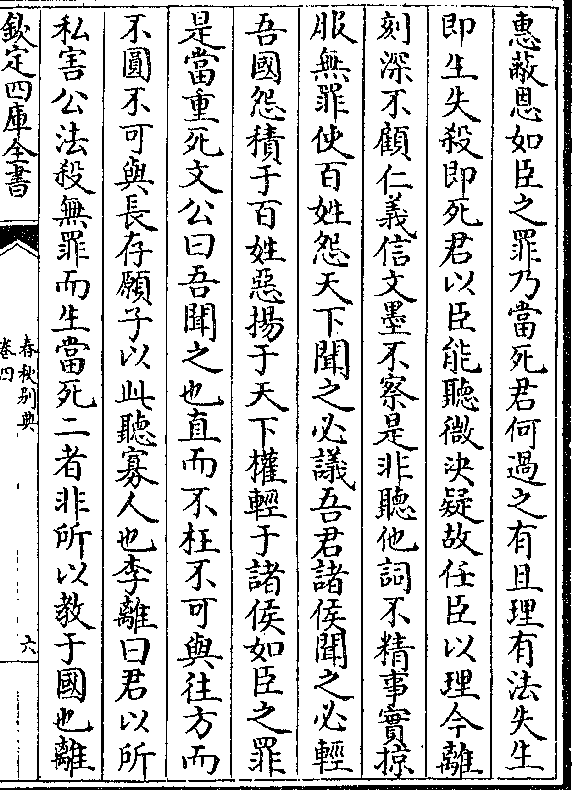 惠蔽恩如臣之罪乃當死君何過之有且理有法失生
即生失殺即死君以臣能聽微決疑故任臣以理今離
刻深不顧仁義信文墨不察是非聽他詞不精事實掠
服無罪使百姓怨天下聞之必議吾君諸侯聞之必輕
吾國怨積于百姓惡揚于天下權輕于諸侯如臣之罪
是當重死文公曰吾聞之也直而不枉不可與往方而
不圓不可與長存願子以此聽寡人也李離曰君以所
私害公法殺無罪而生當死二者非所以教于國也離
欽定四庫全書
春秋别典
卷四
六